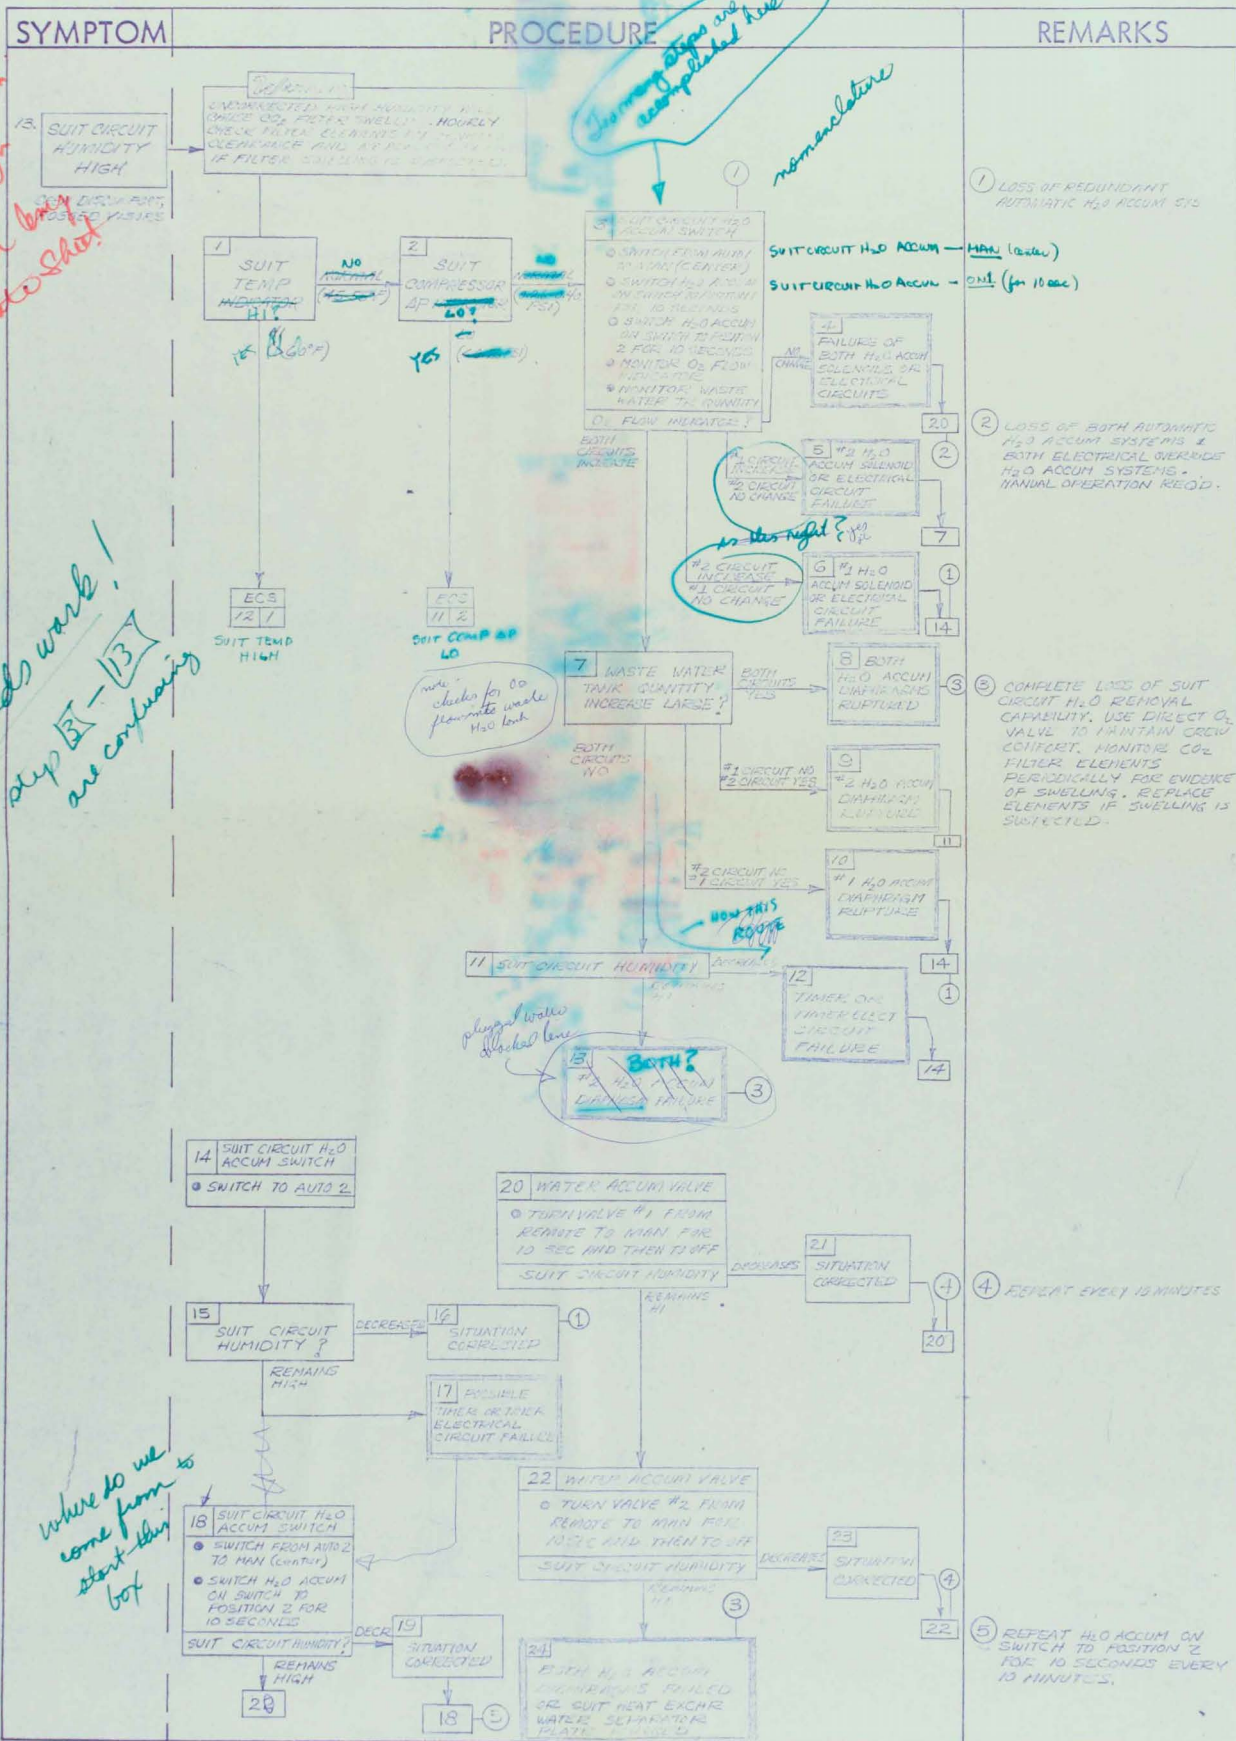 SYMPTOM
PROCEDURE
REMARKS
Too many steps are
accomplished here
nomenclature
13.
SUIT CIRCUIT
HUMIDITY
HIGH
UNCORRECTED HIGH HUMIDITY
CO2 FILTER SWELL HOURLY
CHECK FILTER ELEMENTS
CLEARANCE AND
IF FILTER SWELLING IS
to sheet
1
SUIT
TEMP
INDICATOR
HI?
NO
NORMAL
YES
2
SUIT
COMPRESSOR
ΔP
LO?
NO
NORMAL
PSI)
YES
3 SUIT CIRCUIT H2O
ACCUM SWITCH
SWITCH FROM AUTO
TO MAN (CENTER)
SWITCH H2O ACCUM
ON SWITCH POSITION 1
FOR 10 SECONDS
SWITCH H2O ACCUM
ON SWITCH TO POSITION
2 FOR 10 SECONDS
MONITOR O2 FLOW
INDICATOR
MONITOR WASTE
WATER TK QUANTITY
O2 FLOW INDICATOR?
1
SUIT CIRCUIT H2O ACCUM — MAN (center)
SUIT CIRCUIT H2O ACCUM - ON1 (for 10 sec)
NO
CHANGE
4
FAILURE OF
BOTH H2O ACCUM
SOLENOIDS OR
ELECTRICAL
CIRCUITS
20
2
BOTH
CIRCUITS
#1 CIRCUIT
INCREASE
#2 CIRCUIT
NO CHANGE
5 #2 H2O
ACCUM SOLENOID
OR ELECTRICAL
CIRCUIT
FAILURE
7
is this right? yes
#2 CIRCUIT
INCREASE
#1 CIRCUIT
NO CHANGE
6 #1 H2O
ACCUM SOLENOID
OR ELECTRICAL
CIRCUIT
FAILURE
1
14
ECS
12 1
SUIT TEMP
HIGH
ECS
11 2
SUIT COMP ΔP
LO
work!
step 3 - 13
are confusing
note -
checks for O2
flow into waste
H2O tank
7 WASTE WATER
TANK QUANTITY
INCREASE LARGE?
BOTH
CIRCUITS
YES
8 BOTH
H2O ACCUM
DIAPHRAGMS
RUPTURED
3
BOTH
CIRCUITS
NO
#1 CIRCUIT NO
#2 CIRCUIT YES
9
#2 H2O ACCUM
DIAPHRAGM
RUPTURE
11
#2 CIRCUIT NO
#1 CIRCUIT YES
10
#1 H2O ACCUM
DIAPHRAGM
RUPTURE
14
1
THIS
ROUTE
11 SUIT CIRCUIT HUMIDITY
DECREASES
REMAINS
HI
12
TIMER OR
TIMER ELECT
CIRCUIT
FAILURE
14
13
BOTH?
#2 H2O ACCUM
FAILURE
3
14 SUIT CIRCUIT H2O
ACCUM SWITCH
SWITCH TO AUTO 2
15
SUIT CIRCUIT
HUMIDITY?
DECREASES
16
SITUATION
CORRECTED
1
REMAINS
HIGH
17 POSSIBLE
TIMER OR TIMER
ELECTRICAL
CIRCUIT FAILURE
where do we
come from to
start this
box
18 SUIT CIRCUIT H2O
ACCUM SWITCH
SWITCH FROM AUTO 2
TO MAN (center)
SWITCH H2O ACCUM
ON SWITCH TO
POSITION 2 FOR
10 SECONDS
SUIT CIRCUIT HUMIDITY?
DECR
19
SITUATION
CORRECTED
REMAINS
HIGH
18
5
20 WATER ACCUM VALVE
TURN VALVE #1 FROM
REMOTE TO MAN FOR
10 SEC AND THEN TO OFF
SUIT CIRCUIT HUMIDITY
DECREASES
21
SITUATION
CORRECTED
4
20
REMAINS
HI
22 WATER ACCUM VALVE
TURN VALVE #2 FROM
REMOTE TO MAN FOR
10 SEC AND THEN TO OFF
SUIT CIRCUIT HUMIDITY
DECREASES
23
SITUATION
CORRECTED
4
22
REMAINS
HI
3
24
BOTH H2O ACCUM
DIAPHRAGMS FAILED
OR SUIT HEAT EXCHR
WATER SEPARATOR
1 LOSS OF REDUNDANT
AUTOMATIC H2O ACCUM SYS
2 LOSS OF BOTH AUTOMATIC
H2O ACCUM SYSTEMS &
BOTH ELECTRICAL OVERRIDE
H2O ACCUM SYSTEMS.
MANUAL OPERATION REQD.
3 COMPLETE LOSS OF SUIT
CIRCUIT H2O REMOVAL
CAPABILITY. USE DIRECT O2
VALVE TO MAINTAIN CREW
COMFORT. MONITOR CO2
FILTER ELEMENTS
PERIODICALLY FOR EVIDENCE
OF SWELLING. REPLACE
ELEMENTS IF SWELLING IS
SUSPECTED.
4 REPEAT EVERY 10 MINUTES
5 REPEAT H2O ACCUM ON
SWITCH TO POSITION 2
FOR 10 SECONDS EVERY
10 MINUTES.